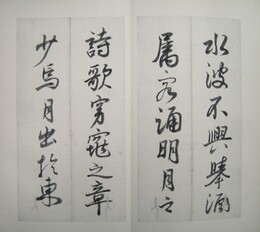 水波不興舉酒
屬客誦明月之
詩歌窈窕之章
少焉月出於東